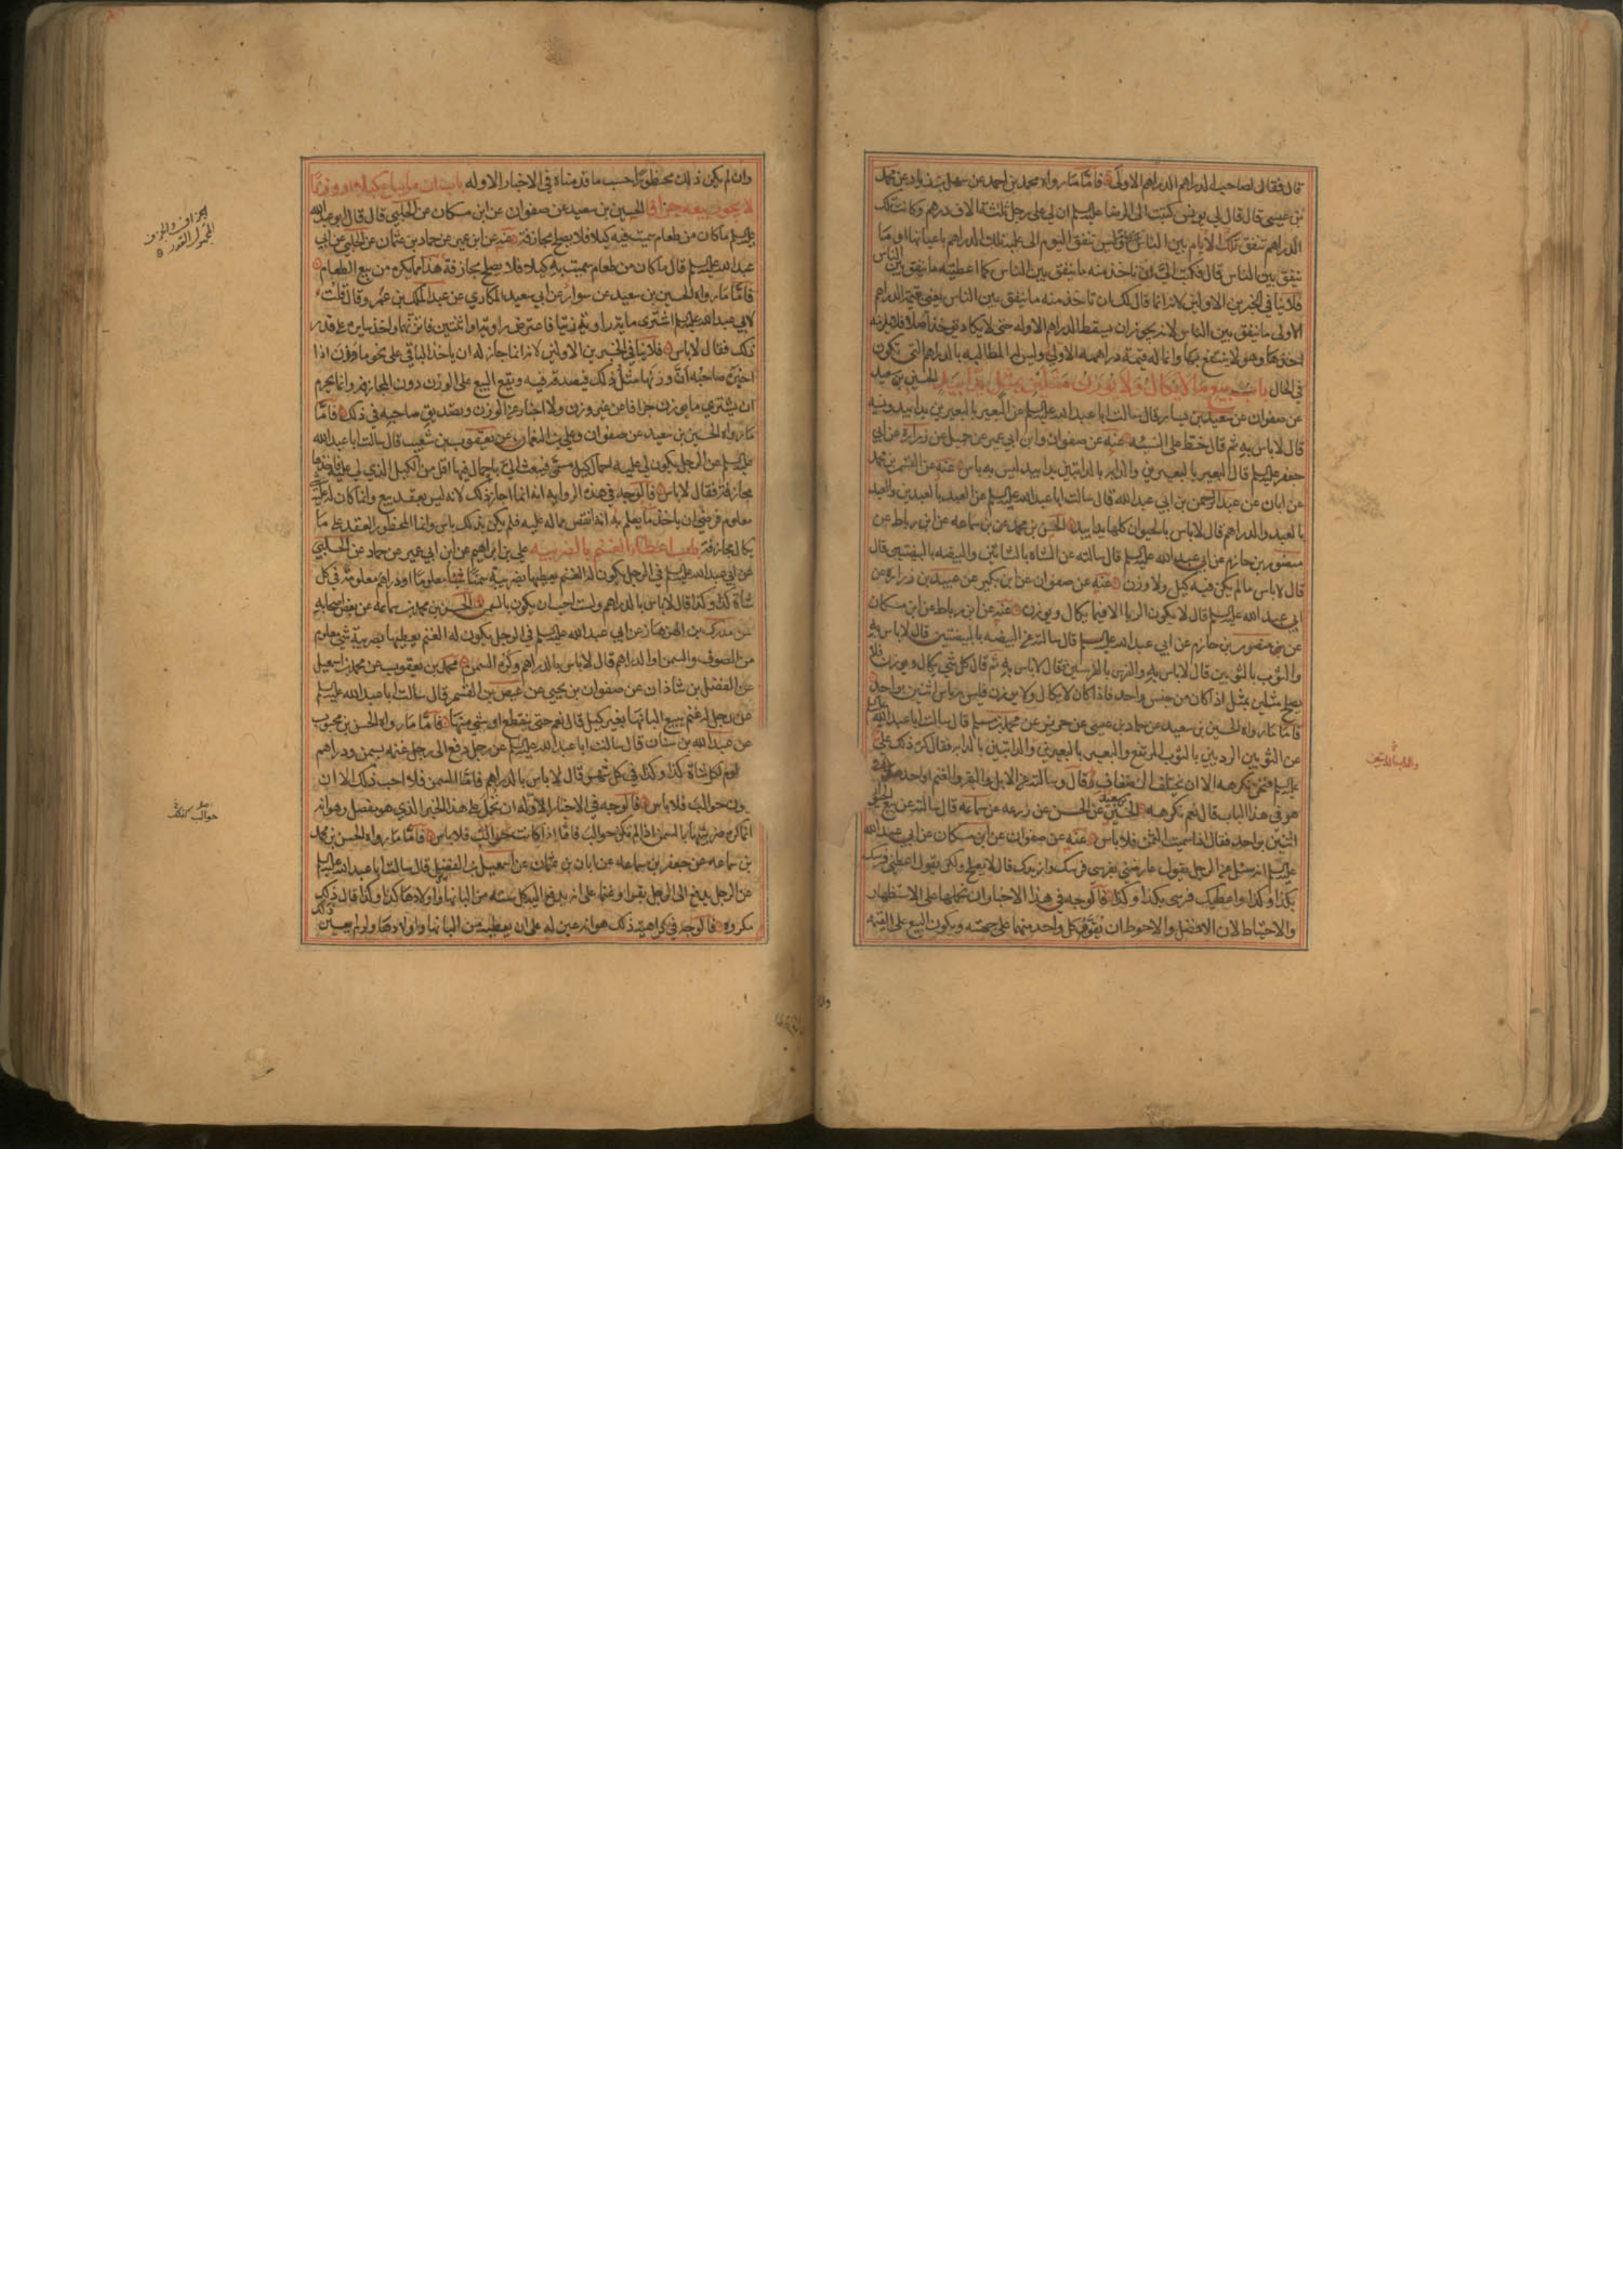 قال فقال لصاحب الدراهم الدراهم الاولى فاما ما رواه محمد بن احمد عن سهل بن زياد عن محمد
بن عيسى قال قال لي يونس كتبت الى الرضا عليه السلم ان لي على رجل ثلثة الاف درهم وكانت تلك
الدراهم تنفق تلك الايام بين الناس وليس تنفق اليوم الى عليه تلك الدراهم باعيانها او ما
ينفق بين الناس قال فكتب الي لك ان تاخذ منه ما ينفق بين الناس كما اعطيته ما ينفق بين الناس
فلا ينافي الخبرين الاولين لانه انما قال لك ان تاخذ منه ما ينفق بين الناس يعني قيمة الدراهم
الاولى ما ينفق بين الناس لانه يجوز ان يسقط الدراهم الاوله حتى لا يكاد تؤخذ اصلا فلا يلزمه
اخذها وهو لا ينتفع بها وانما له قيمة دراهمه الاولى وليس له المطالبه بالدراهم التي تكون
في الحال باب بيع ما لا يكال ولا يوزن مثلين بمثل يدا بيد الحسين بن سعيد
عن صفوان عن سعيد بن يسار قال سالت ابا عبد الله عليه السلم عن البعير بالبعيرين يدا بيد ونسيه
قال لا باس به ثم قال خط على النسيه عنه عن صفوان وابن ابي عمير عن جميل عن زراره عن ابي
جعفر عليه السلم قال البعير بالبعيرين والدابه بالدابتين يدا بيد ليس به باس عنه عن القسم بن محمد
عن ابان عن عبد الرحمن بن ابي عبد الله قال سالت ابا عبد الله عليه السلم عن العبد بالعبدين والعبد
بالعبد والدراهم قال لا باس بالحيوان كلها يدا بيد الحسن بن محمد بن سماعه عن ابن رباط عن
منصور بن حازم عن ابي عبد الله عليه السلم قال سالته عن الشاه بالشاتين والبيضه بالبيضتين قال
قال لا باس ما لم يكن فيه كيل ولا وزن عنه عن صفوان عن ابن بكير عن عبيد بن زراره عن
ابي عبد الله عليه السلم قال لا يكون الربا الا فيما يكال ويوزن عنه عن ابن رباط عن ابن مسكان
عن منصور بن حازم عن ابي عبد الله عليه السلم قال سالته عن البيضه بالبيضتين قال لا باس به
والثوب بالثوبين قال لا باس به والفرس بالفرسين فقال لا باس به ثم قال كل شي يكال ويوزن فلا
يصلح مثلين بمثل اذا كان من جنس واحد فاذا كان لا يكال ولا يوزن فليس به باس اثنين بواحد
فاما ما رواه الحسين بن سعيد عن حماد بن عيسى عن حريز عن محمد بن مسلم قال سالت ابا عبد الله عليه
عن الثوبين الرديين بالثوب المرتفع والبعير بالبعيرين والدابتين بالدابه فقال كره ذلك علي
عليه السلم فنحن نكرهه الا ان يختلف الصنفان قال وسالته عن الابل والبقر والغنم او احدهن
هو في هذا الباب قال نعم نكرهه الحسين بن سعيد عن الحسن عن زرعه عن سماعه قال سالته عن بيع الحيوان
اثنين بواحد فقال اذا سميت الثمن فلا باس عنه عن صفوان عن ابن مسكان عن ابي عبد الله
عليه السلم انه سئل عن الرجل يقول عارضني بفرسي فرسك وازيدك قال لا يصلح ولكن يقول اعطني فرسك
بكذا وكذا واعطيك فرسي بكذا وكذا فالوجه في هذا الاخبار ان نحملها على الاستظهار
والاحتياط لان الافضل والاحوط ان يقوم كل واحد منهما على جهته ويكون البيع على القيمه
وان لم يكن ذلك محظورا حسب ما قدمناه في الاخبار الاوله باب ان ما يباع كيلا او وزنا
لا يجوز بيعه جزافا الحسين بن سعيد عن صفوان عن ابن مسكان عن الحلبي قال قال ابو عبد الله
عليه السلم ما كان من طعام سميت فيه كيلا فلا يصلح مجازفة عنه عن ابن ابي عمير عن حماد بن عثمان عن الحلبي عن ابي
عبد الله عليه السلم قال ما كان من طعام سميت به كيلا فلا يصلح مجازفة هذا مما يكره من بيع الطعام
فاما ما رواه الحسين بن سعيد عن سوار عن ابي سعيد المكاري عن عبد الملك بن عمرو قال قلت
لابي عبد الله عليه السلم اشترى مايه راويه زيتا فاعترض راويه او اثنتين فاتزنهما واخذ سايره على قدر
ذلك فقال لا باس فلا ينافي الخبرين الاولين لانه انما جاز له ان ياخذ الباقي على نحو ما وزن اذا
اخبره صاحبه ان وزنها مثل ذلك فيصدقه فيه ويقع البيع على الوزن دون المجازفه وانما يحرم
ان يشتري ما يوزن جزافا من غير وزن ولا اخبار عن الوزن وتصديق صاحبه في ذلك فاما
ما رواه الحسين بن سعيد عن صفوان وعلي بن النعمان عن يعقوب بن شعيب قال سالت ابا عبد الله
عليه السلم عن الرجل يكون لي عليه احمال كيل مسمى فيبعث الي باحمال فيها اقل من الكيل الذي لي عليه فاخذها
مجازفة فقال لا باس فالوجه في هذه الروايه انه انما اجاز ذلك لانه ليس بعقد بيع وانما كان له عليه
معلوم فرضي ان ياخذ ما يعلم به انه انقص مما له عليه فلم يكن بذلك باس وانما المحظور العقد على ما
يكال مجازفة باب اعطاء الغنم بالضريبه علي بن ابراهيم عن ابن ابي عمير عن حماد عن الحلبي
عن ابي عبد الله عليه السلم في الرجل يكون له الغنم يعطيها بضريبة سمنا شيئا معلوما او دراهم معلومة في كل
شاة كذا وكذا قال لا باس بالدراهم ولست احب ان يكون بالسمن الحسن بن محمد بن سماعه عن بعض اصحابه
عن مدرك بن الهزهاز عن ابي عبد الله عليه السلم في الرجل يكون له الغنم يعطيها بضريبة شي معلوم
من الصوف والسمن او الدراهم قال لا باس بالدراهم وكره السمن محمد بن يعقوب عن محمد بن اسمعيل
عن الفضل بن شاذان عن صفوان بن يحيى عن عيص بن القسم قال سالت ابا عبد الله عليه السلم
عن رجل له غنم يبيع البانها بغير كيل قال نعم حتى ينقطع او شي منها فاما ما رواه الحسن بن محبوب
عن عبد الله بن سنان قال سالت ابا عبد الله عليه السلم عن رجل دفع الى رجل غنمه بسمن ودراهم
لكل شاة كذا وكذا في كل شهر قال لا باس بالدراهم فاما السمن فلا احب ذلك الا ان
يكون حوالب فلا باس فالوجه في الاخبار الاوله ان نحمل على هذا الخبر الذي هو مفصل وهو انه
انما كره ضريبتها بالسمن اذا لم تكن حوالب فاما اذا كانت حوالب فلا باس فاما ما رواه الحسن بن محمد
بن سماعه عن جعفر بن سماعه عن ابان بن عثمان عن اسمعيل بن الفضل قال سالت ابا عبد الله عليه السلم
عن الرجل يدفع الى الرجل بقرا وغنما على ان يدفع اليه كل سنه من البانها واولادها كذا وكذا قال ذلك
مكروه فالوجه في كراهيته ذلك هو انه عين له على ان يعطيه من البانها واولادها ولم يعين
والدابه بالدابتين